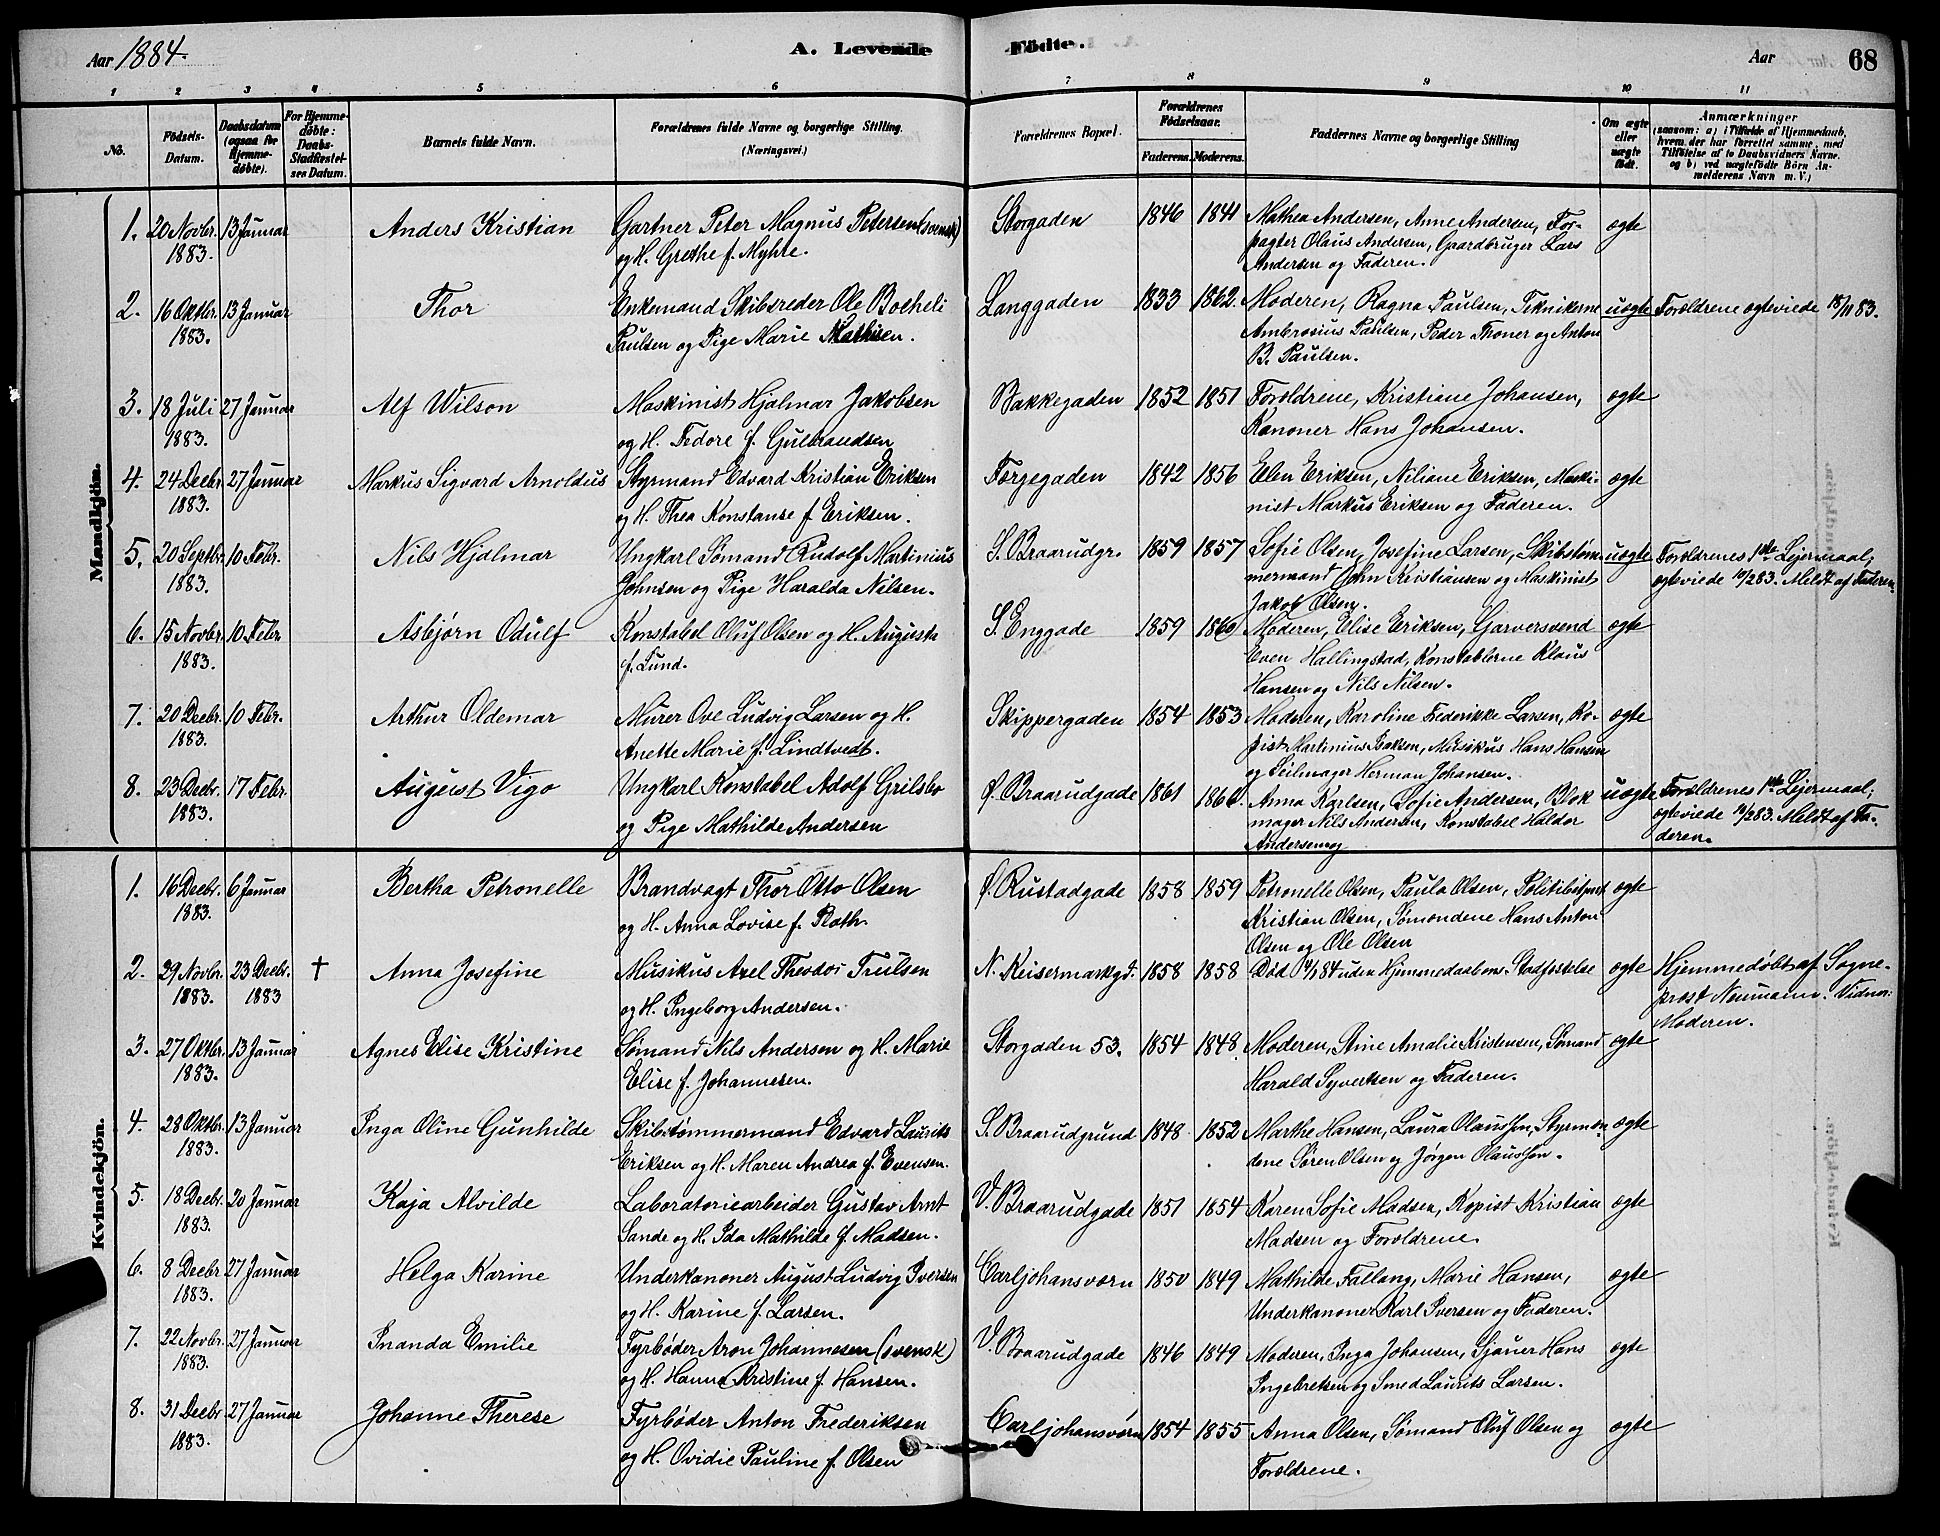 Aar 1884.
A. Levende
Födte.
Aar
68
1 2 3 4 5 6 7 8 9 10 11
No.
Födsels-
Datum.
Daabsdatum
(ogsaa for
Hjemme-
døbte).
For Hjemme-
døbte:
Daabs-
Stadfæstel-
ses Datum.
Barnets fulde Navn.
Forældrenes fulde Navne og borgerlige Stilling.
(Næringsvei.)
Forældrenes Bopæl.
Forældrenes
Födselsaar.
Faderens.
Moderens.
Faddernes Navne og borgerlige Stilling
Om ægte
eller
uægte
født.
Anmærkninger
(saasom: a) i Tilfælde af Hjemmedaab,
hvem der har forrettet samme, med
Tilföielse af to Daabsvidners Navne.
og b) ved uægtefödte Börn An-
melderens Navn m. V.)
Mandkjön.
1. 20 Novbr. 13 Januar Anders Kristian Gartner Peter Magnus Petersen (svensk) Storgaden 1846 1841 Mathea Andersen, Anne Andersen, For- ægte
1883. og H. Grethe f. Myhre. pagter Olaus Andersen, Gaardbruger Lars
Andersen og Faderen.
2. 16 Oktbr. 13 Januar Thor Enkemand Skibsreder Ole Bocheli Langgaden 1833 1862. Moderen, Ragna Paulsen, Teknikerne uægte Forældrene ægteviede 18/11 83.
1883. Paulsen og Pige Marie Mathisen. Ambrosius Paulsen, Peder Thoner og Anton
B. Paulsen.
3. 18 Juli 27 Januar Alf Wilson Maskinist Hjalmar Jakobsen Bakkegaden 1852 1851 Forældrene, Kristiane Johansen, ægte
1883. og H. Fedore f. Gulbrandsen Kanoner Hans Johansen.
4. 24 Decbr. 27 Januar Markus Sigvard Arnoldus Styrmand Edvard Kristian Eriksen Færgegaden 1842 1856 Elen Eriksen, Niliane Eriksen, Maski- ægte
1883. og H. Thea Konstanse f Eriksen. nist Markus Eriksen og Faderen.
5. 20 Septbr. 10 Febr. Nils Hjalmar Ungkarl Sømand Rudolf Martinius S. Braarudgr. 1859 1857 Sofie Olsen, Josefine Larsen, Skibstøm- uægte Forældrenes 1ste Lejermaal;
1883. Johnsen og Pige Haralda Nilsen. mermand John Kristiansen og Maskinist ægteviede 10/2 83. Meldt af Faderen.
Jakob Olsen.
6. 15 Novbr. 10 Febr. Asbjørn Odulf Konstabel Oluf Olsen og H. Augusta S. Enggade 1859 1860 Moderen, Elise Eriksen, Garversvend ægte
1883. f. Lund. Even Hallingstad, Konstablerne Klaus
Hansen og Nils Nilsen.
7. 20 Decbr. 10 Febr. Arthur Oldemar Murer Ove Ludvig Larsen og H. Skippergaden 1854 1853 Moderen, Karoline Frederikke Larsen, Ko- ægte
1883. Anette Marie f. Lindtvedt. pist Martinius Isaksen, Musikus Hans Hansen
og Seilmager Herman Johansen.
8. 23 Decbr. 17 Febr. August Vigo Ungkarl Konstabel Adolf Grilsbo Ø. Braarudgade 1861 Anna Karlsen, Sofie Andersen, Blok uægte Forældrenes 1ste Lejermaal;
1883. og Pige Mathilde Andersen mager Nils Andersen, Konstabel Haldor ægteviede 10/2 83. Meldt af Fa-
Andersen og deren.
Kvindekjön.
1. 16 Decbr. 6 Januar Bertha Petronelle Brandvagt Thor Otto Olsen Ø. Rustadgade 1858 1859 Petronelle Olsen, Paula Olsen, Politibetjent ægte
1883. og H. Anna Lovise f. Rath. Kristian Olsen, Sømændene Hans Anton
Olsen og Ole Olsen
2. 29 Novbr. 23 Decbr. † Anna Josefine Musikus Axel Theodor Trulsen N. Keisermarkgd. 1858 1858 Død 4/1 84 uden Hjemmedaabens Stadfæstelse ægte Hjemmedøbt af Sogne-
1883. 1883 og H. Ingeborg Andersen. præst Neumann. Vidner:
Moderen.
3. 27 Oktbr. 13 Januar Agnes Elise Kristine Sømand Nils Andersen og H. Marie Storgaden 53. 1854 1848. Moderen, Stine Amalie Kristensen, Sømand ægte
1883. Elise f. Johannesen. Harald Syvertsen og Faderen.
4. 28 Oktbr. 13 Januar Inga Oline Gunhilde Skibstømmermand Edvard Laurits S. Braarudgrund 1848 1852 Marthe Hansen, Laura Olaussen, Styrmæn- ægte
1883. Eriksen og H. Maren Andrea f. Evensen. dene Søren Olsen og Jørgen Olaussen.
5. 18 Decbr. 20 Januar Kaja Alvilde Laboratoriearbeider Gustav Arnt V. Braarudgade 1851 1854 Karen Sofie Madsen, Kopist Kristian ægte
1883. Sande og H. Ida Mathilde f. Madsen. Madsen og Forældrene.
6. 8 Decbr 27 Januar Helga Karine Underkanoner August Ludvig Iversen Carljohansværn 1850 1849 Mathilde Fallang, Marie Hansen, ægte
1883. og H. Karine f. Larsen. Underkanoner Karl Iversen og Faderen.
7. 22 Novbr. 27 Januar Inanda Emilie Fyrbøder Aron Johannesen (svensk) V. Braarudgade 1846 1849 Moderen, Inga Johansen, Sjauer Hans ægte
1883. og H. Hanna Kristine f. Hansen. Ingebretsen og Smed Laurits Larsen.
8. 31 Decbr 27 Januar Johanne Therese Fyrbøder Anton Frederiksen Carljohansværn 1854 1855 Anna Olsen, Sømand Oluf Olsen og ægte
1883. og H. Ovidie Pauline f. Olsen Forældrene.